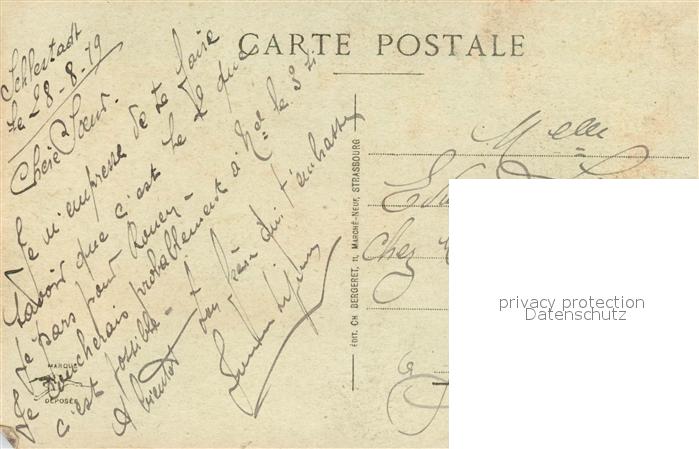 CARTE POSTALE
Schlestadt
le 28-8-19
Chère Sœur.
Je m'empresse de te faire
savoir que c'est le 2 que
je pars pour Rouen -
Je coucherais probablement à le 3 si
c'est possible -
A bientôt
ton frère qui t'embrasse
MARQUE
DÉPOSÉE
ÉDIT. CH BERGERET, 11, MARCHÉ-NEUF, STRASBOURG
Melle
Chez
privacy protection
Datenschutz